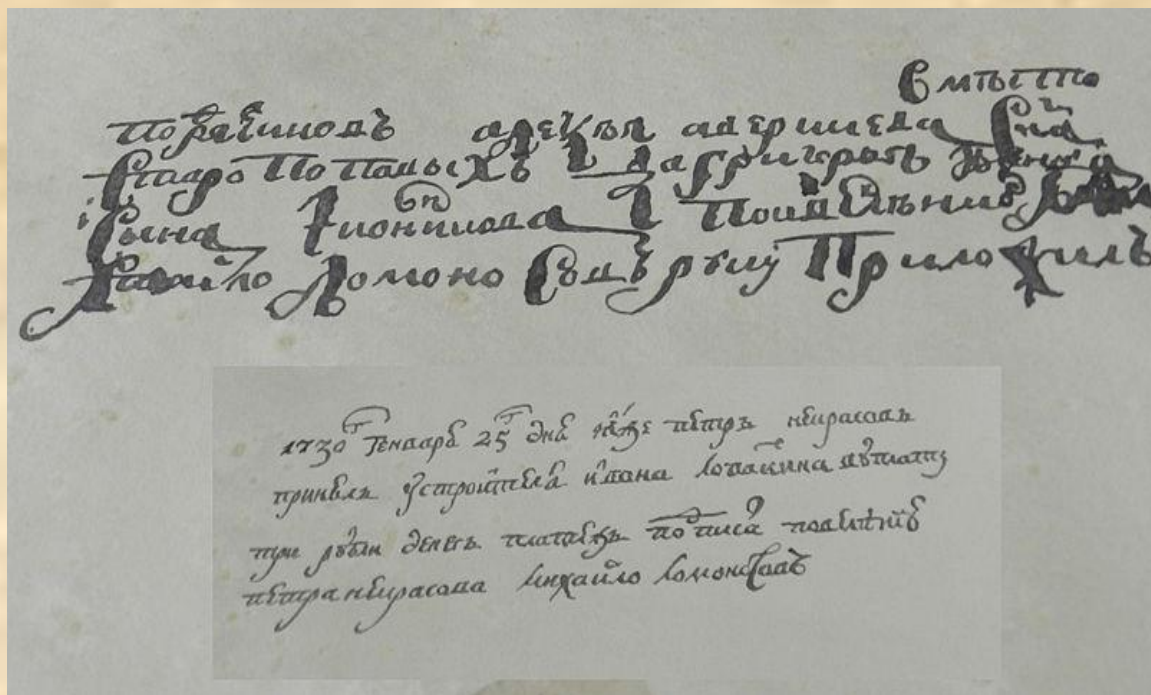 Вмѣсто
подрячиковъ алекѣя аверкиева сна
старопоповыхъ да григорья
сына иконникова по веленію
Михайло Ломоносовъ руку приложилъ
1730 генваря 25 дня петръ некрасовъ
принелъ у строителя ивана
три рубли денегъ подписа повелѣнию
петра некрасова михайло ломоносовъ